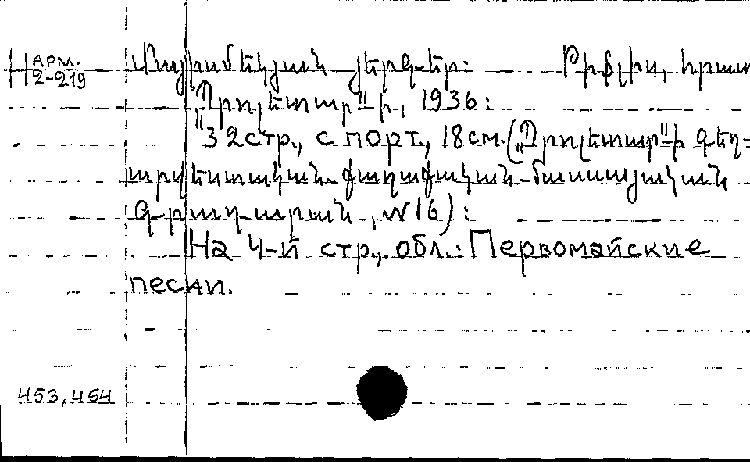 Н АРМ. 2-219
Մայիսմեկյան յերգեր: Թիֆլիս, հրատ.
„Պրոլետար"ի, 1936:
32 стр., с порт., 18 см. („Պրոլետար"ի գեղ-
արվեստական-քաղաքական մասսայական
գրադարան, №16):
На 4-й стр. обл.: Первомайские
песни.
453, 454